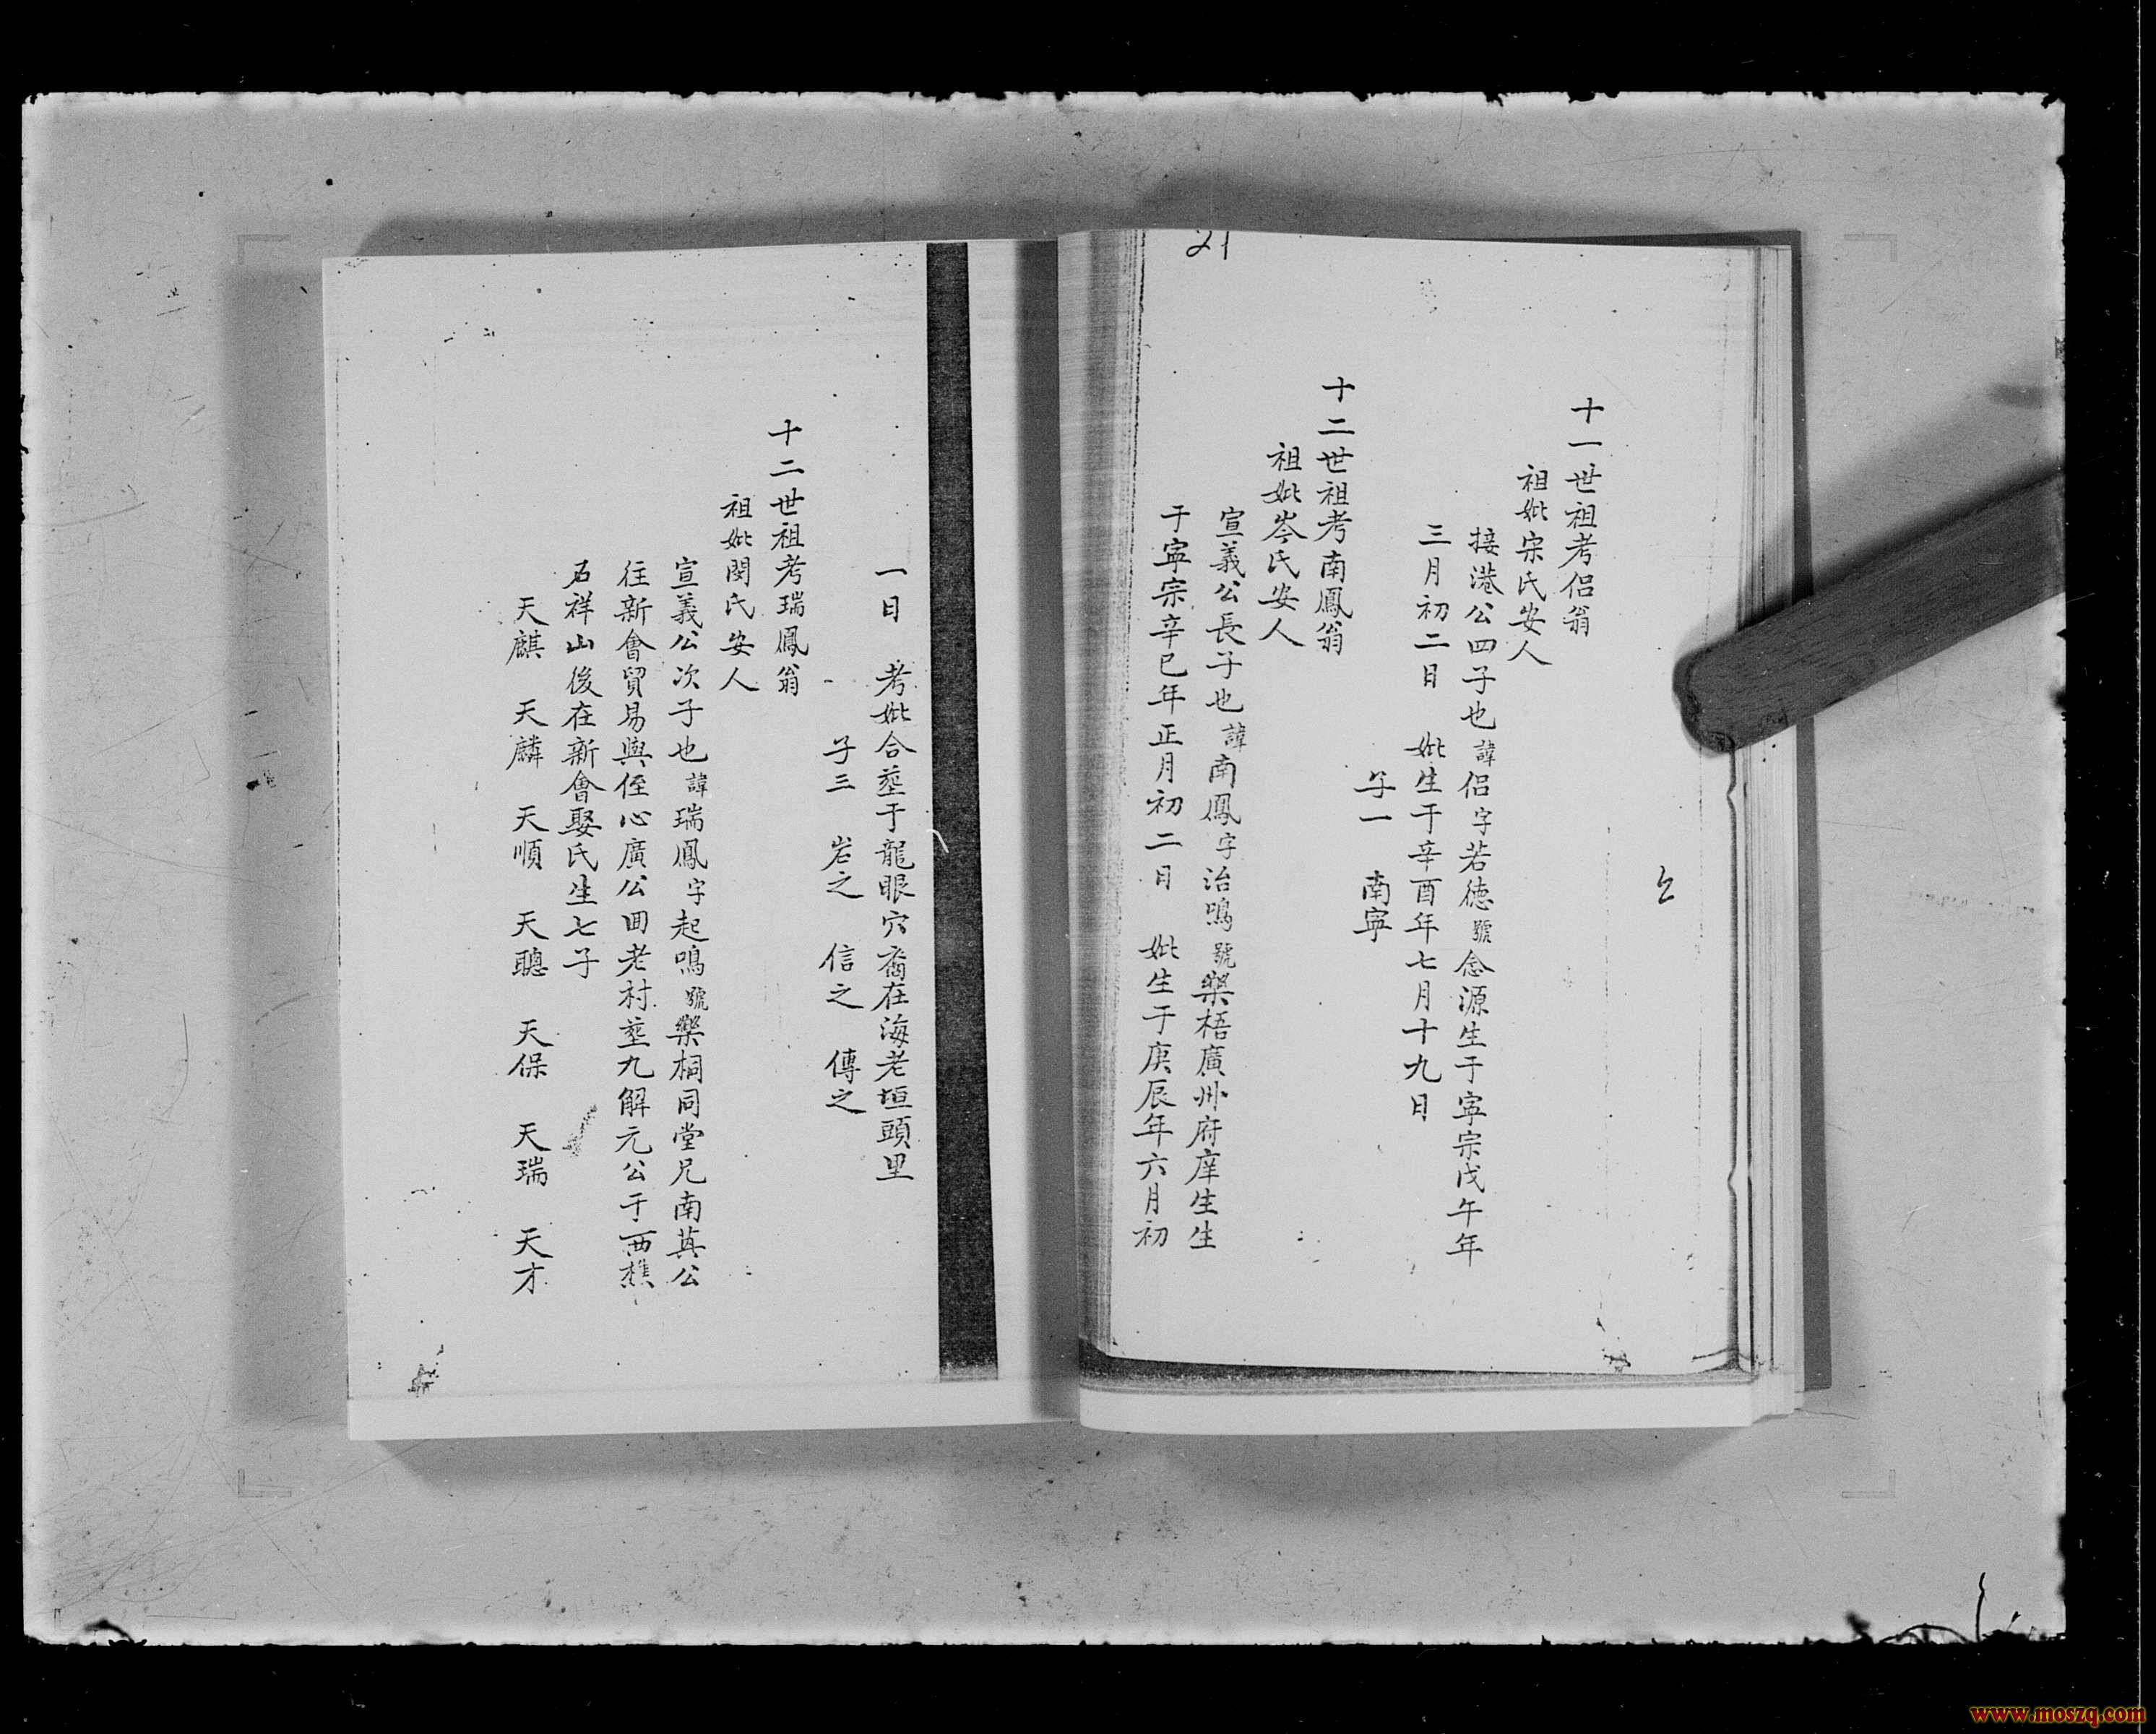 21
十一世祖考侣翁
祖妣宗氏安人
接港公四子也諱侣字若德號念源生于寧宗戊午年
三月初二日 妣生于辛酉年七月十九日
子一 南寧
十二世祖考南鳳翁
祖妣岑氏安人
宣義公長子也諱南鳳字治鳴號樂梧廣州府庠生生
于寧宗辛巳年正月初二日 妣生于庚辰年六月初
一日 考妣合塟于龍眼穴裔在海老垣頭里
子三 岩之 信之 傳之
十二世祖考瑞鳳翁
祖妣閔氏安人
宣義公次子也諱瑞鳳字起鳴號樂桐同堂兄南英公
往新會貿易與侄心廣公囬老村塟九解元公于西樵
石祥山後在新會娶氏生七子
天麒 天麟 天順 天聰 天保 天瑞 天才
www.moszq.com